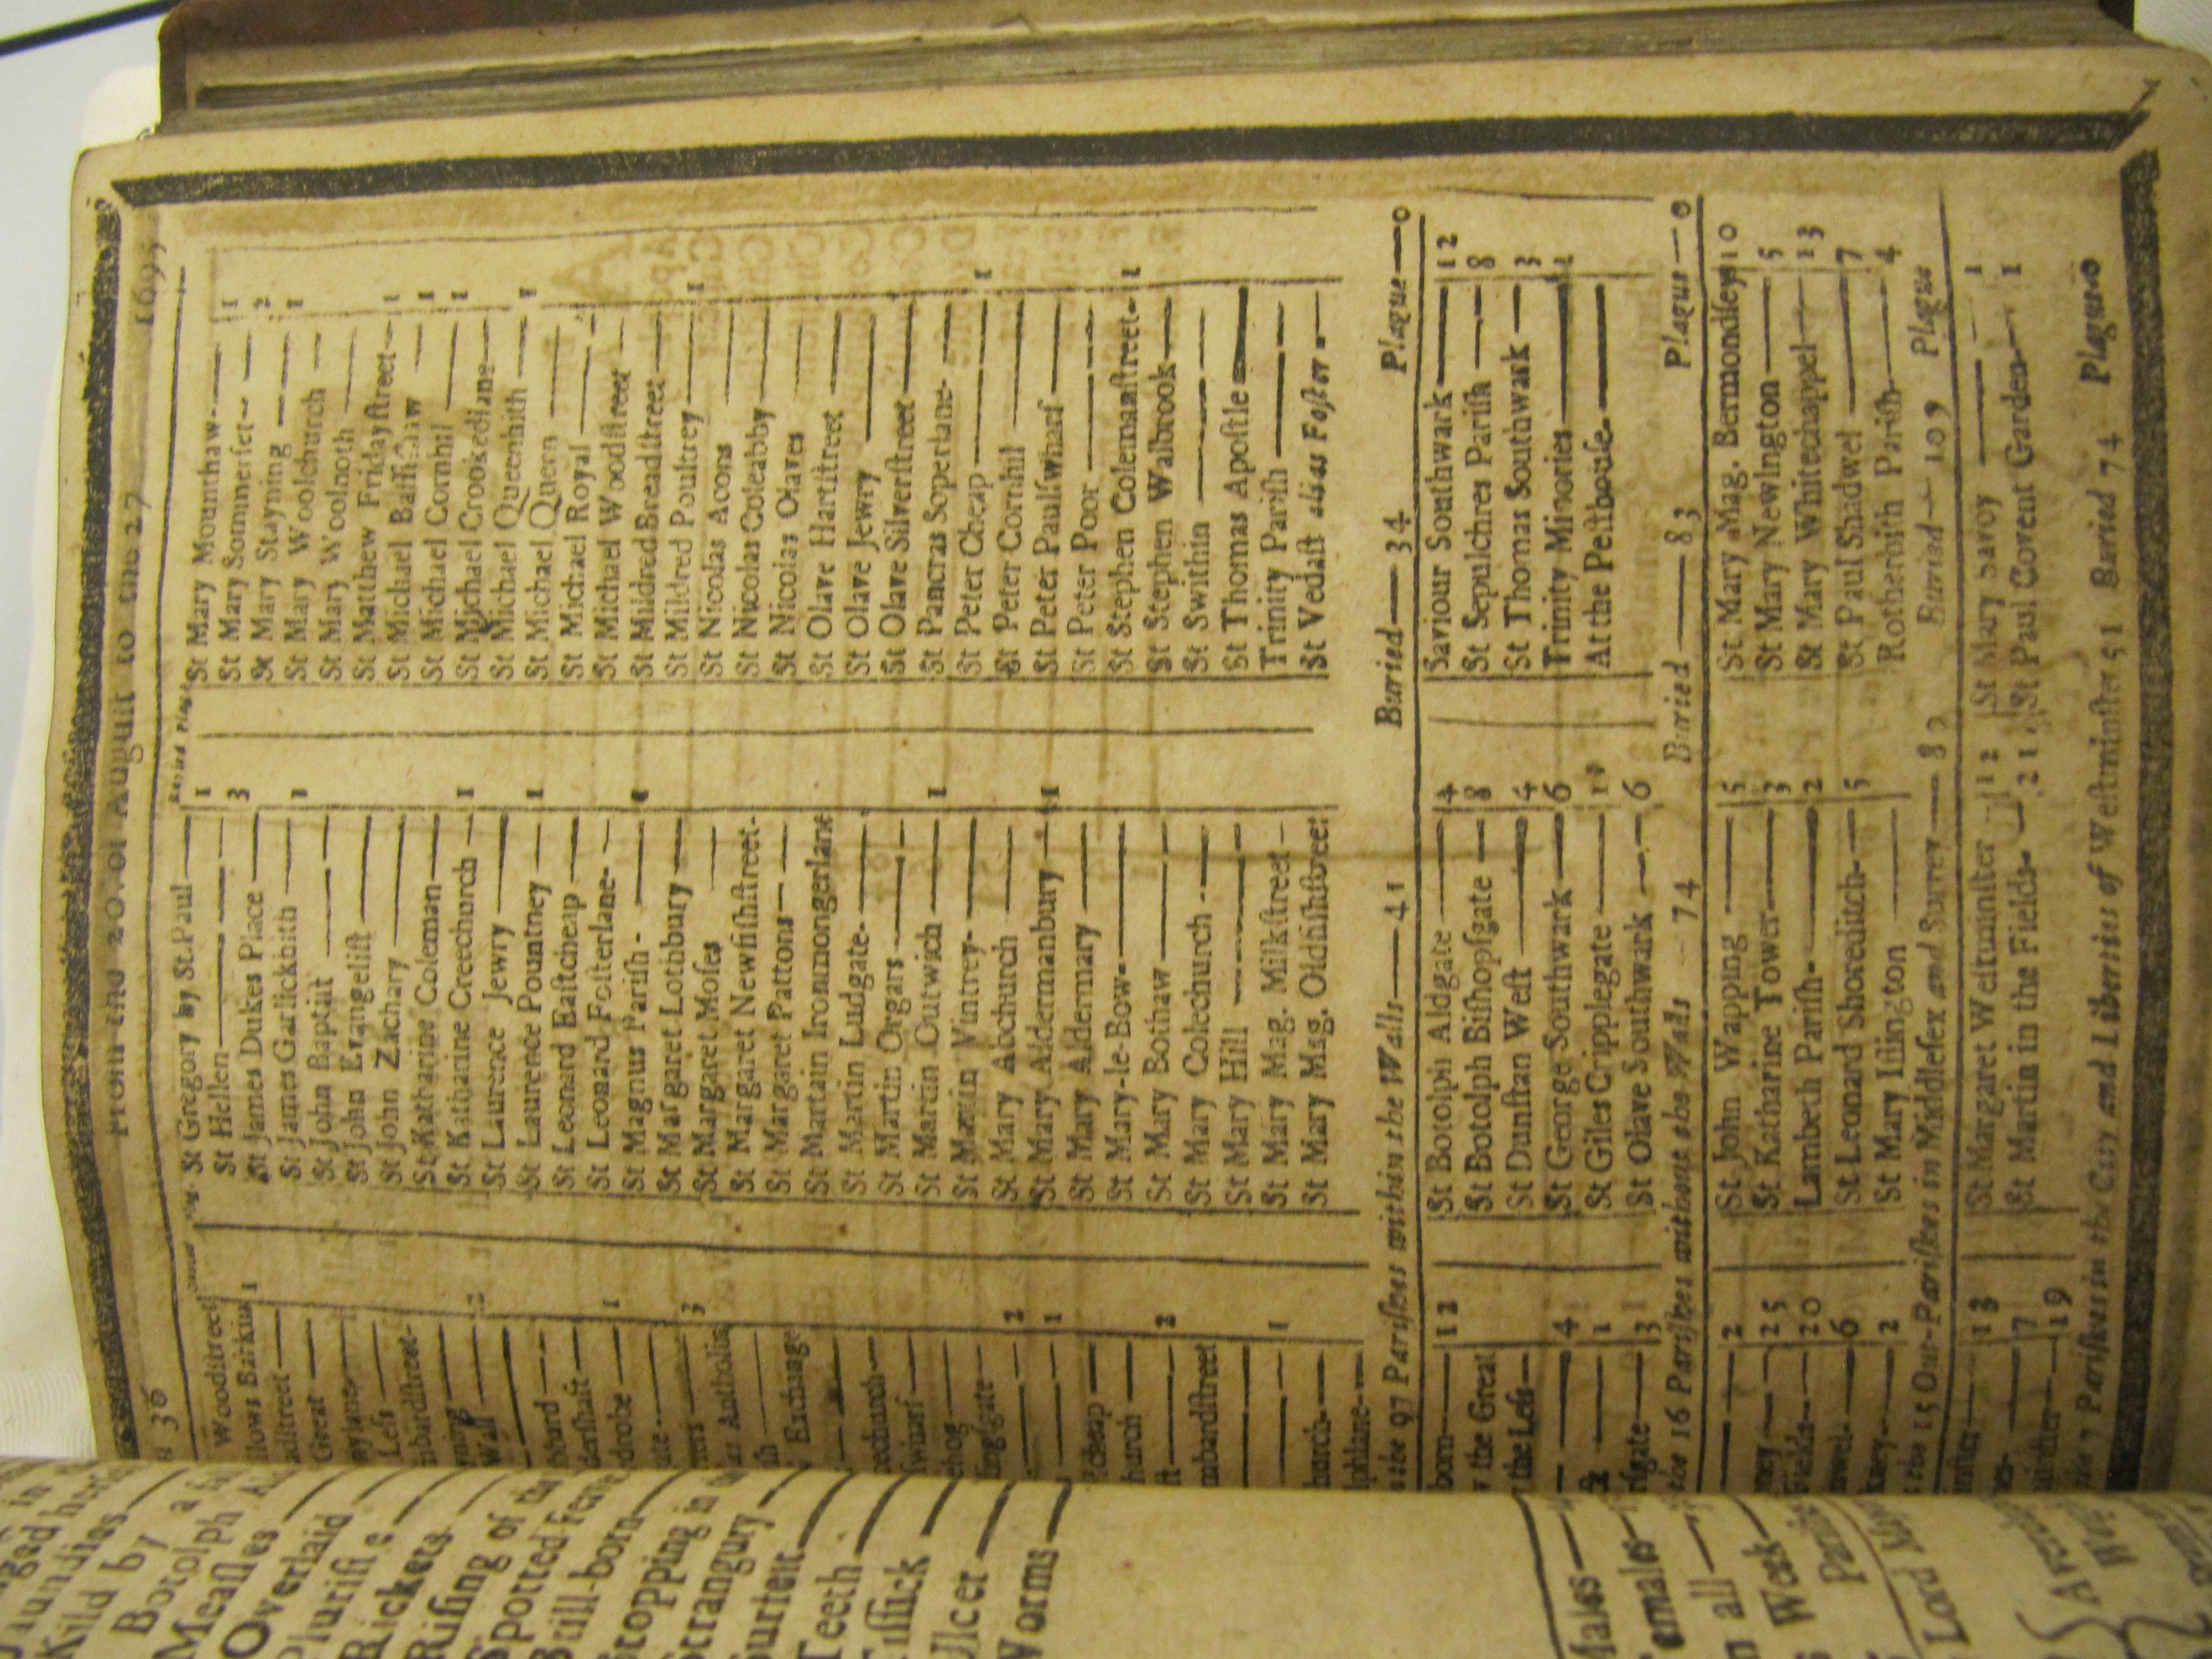 36 From the 20. of August to the 27 1695
Woodstreet
llows Barkin 1
adstreet —
Great —
Less —
mbardstreet-
Wall —
bbard —
dershaft —
drobe — 1
ate —
3
as Antholin
Exchange
echurch —
swharf —
ehog —
ingsgate —
2
1
tcheap —
hurch —
2
mbardstreet
1
hurch —
Buried Plag.
St Gregory by St.Paul — 1
St Hellen — 3
St James Dukes Place —
St James Garlickhith — 1
St John Baptist —
St John Evangelist —
St John Zachary —
St Katharine Coleman —
St Katharine Creechurch — 1
St Laurence Jewry —
St Laurence Pountney — 1
St Leonard Eastcheap —
St Leonard Fosterlane- —
St Magnus Parish -
St Margaret Lothbury —
St Margaret Moses —
St Margaret Newfishstreet-
St Margaret Pattons —
St Martain Ironmongerlane
St Martin Ludgate-
St Martin Orgars —
St Martin Outwich — 1
St Martin Vintrey- —
St Mary Abchurch —
St Mary Aldermanbury — 1
St Mary Aldermary —
St Mary-le-Bow- —
St Mary Bothaw —
St Mary Colechurch —
St Mary Hill —
St Mary Mag. Milkstreet —
St Mary Mag. Oldfishstreet
St Mary Mounthaw — 1
St Mary Sommerset — 2
St Mary Stayning — 1
St Mary Woolchurch —
St Mary Woolnoth —
St Matthew Fridaystreet — 1
St Michael Bassishaw — 1
St Michael Cornhil — 1
St Michael Crookedlane —
St Michael Queenhith — 1
St Michael Quern —
St Michael Royal —
St Michael Woodstreet —
St Mildred Breadstreet —
St Mildred Poultrey — 1
St Nicolas Acons
St Nicolas Coleabby —
St Nicolas Olaves
St Olave Hartstreet —
St Olave Jewry —
St Olave Silverstreet —
St Pancras Soperlane- —
St Peter Cheap — 1
St Peter Cornhil —
St Peter Paulswharf —
St Peter Poor —
St Stephen Colemanstreet- 1
St Stephen Walbrook —
St Swithin —
St Thomas Apostle —
Trinity Parish —
St Vedast alias Foster —
the 97 Parishes within the Walls — 41 Buried — 34 Plague — 0
born — 12
y the Great
y the Less —
4
1
rigate — 3
St Botolph Aldgate — 4
St Botolph Bishopsgate — 8
St Dunstan West — 4
St George Southwark — 6
St Giles Cripplegate —
St Olave Southwark — 6
Saviour Southwark — 12
St Sepulchres Parish — 8
St Thomas Southwark — 3
Trinity Minories —
At the Pesthouse —
the 16 Parishes without the Walls 74 Buried — 83 Plague — 0
2
ney — 25
Fields — 20
6
2
St John Wapping — 5
St Katharine Tower — 3
Lambeth Parish- — 2
St Leonard Shoreditch- — 5
St Mary Islington —
St Mary Mag. Bermondsey 10
St Mary Newington — 5
St Mary Whitechappel — 13
St Paul Shadwel — 7
Rotherhith Parish — 4
the 15 Out-Parishes in Middlesex and Surrey — 83 Buried — 109 Plague
7
19
St Margaret Westminster 12
St Martin in the Fields- 21
St Mary Savoy — 1
St Paul Covent Garden — 1
the 7 Parishes in the City and Liberties of Westminster 51 Buried 74 Plague 0
Jaundies
Kild by a
Botolph Al
Measles
Overlaid
Plurisie
Rickets
Rising of the
Spotted Feve
Still-born
Stopping in
Strangury
Teeth
Tissick
Ulcer
Worms
Males —
Females —
n all —
Week —
Parishes
Lord